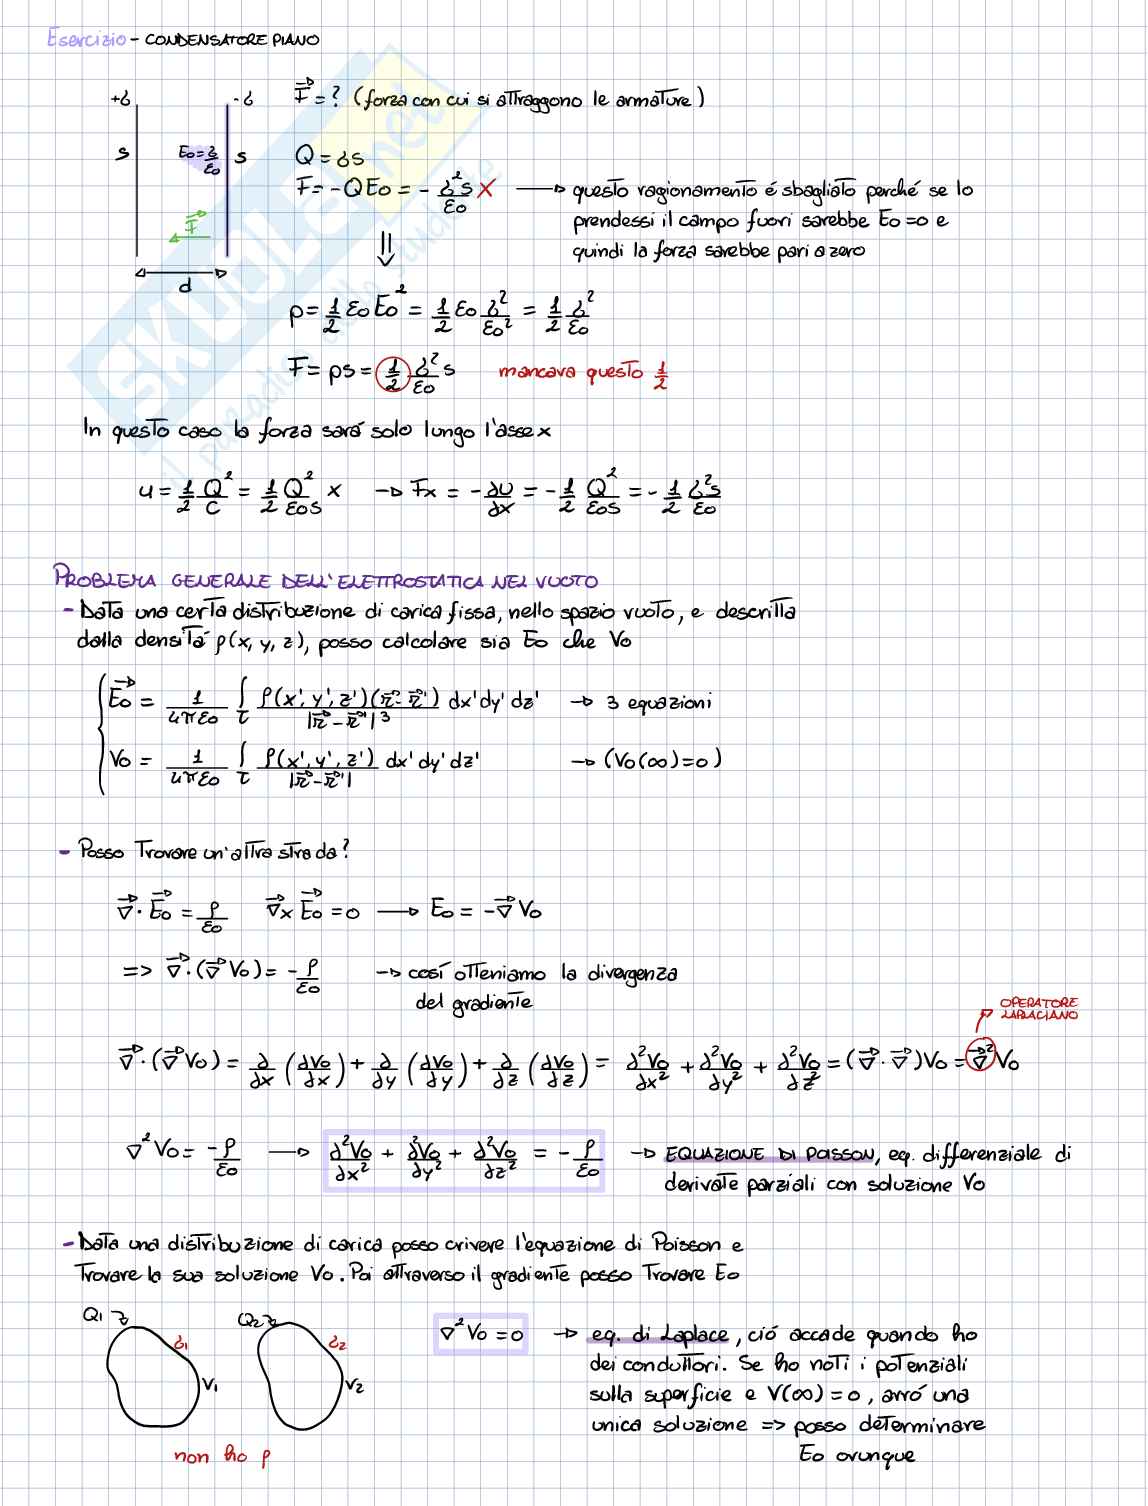 Esercizio - CONDENSATORE PIANO
+σ -σ F⃗ = ? (forza con cui si attraggono le armature)
S E₀ = σ/ε₀ S Q = σS
F = -QE₀ = - σ²S/ε₀ X → questo ragionamento é sbagliato perché se lo
prendessi il campo fuori sarebbe E₀ = 0 e
quindi la forza sarebbe pari a zero
F⃗
d
⇓
p = 1/2 ε₀ E₀² = 1/2 ε₀ σ²/ε₀² = 1/2 σ²/ε₀
F = pS = 1/2 σ²/ε₀ S mancava questo 1/2
In questo caso la forza sará solo lungo l'asse x
U = 1/2 Q²/C = 1/2 Q²/ε₀S x → Fx = - ∂U/∂x = - 1/2 Q²/ε₀S = - 1/2 σ²S/ε₀
PROBLEMA GENERALE DELL'ELETTROSTATICA NEL VUOTO
- Data una certa distribuzione di carica fissa, nello spazio vuoto, e descritta
dalla densitá ρ(x, y, z), posso calcolare sia E₀ che V₀
E⃗₀ = 1/4πε₀ ∫τ ρ(x', y', z')(r⃗ - r⃗')/|r⃗ - r⃗'|³ dx'dy'dz' → 3 equazioni
V₀ = 1/4πε₀ ∫τ ρ(x', y', z')/|r⃗ - r⃗'| dx'dy'dz' → (V₀(∞) = 0)
- Posso trovare un'altra strada?
∇⃗ · E⃗₀ = ρ/ε₀ ∇⃗ x E⃗₀ = 0 → E₀ = -∇⃗V₀
=> ∇⃗ · (∇⃗V₀) = - ρ/ε₀ → cosí otteniamo la divergenza
del gradiente
OPERATORE
LAPLACIANO
∇⃗ · (∇⃗V₀) = ∂/∂x (∂V₀/∂x) + ∂/∂y (∂V₀/∂y) + ∂/∂z (∂V₀/∂z) = ∂²V₀/∂x² + ∂²V₀/∂y² + ∂²V₀/∂z² = (∇⃗ · ∇⃗)V₀ = ∇⃗²V₀
∇²V₀ = - ρ/ε₀ → ∂²V₀/∂x² + ∂²V₀/∂y² + ∂²V₀/∂z² = - ρ/ε₀ → EQUAZIONE DI POISSON, eq. differenziale di
derivate parziali con soluzione V₀
- Data una distribuzione di carica posso crivere l'equazione di Poisson e
trovare la sua soluzione V₀. Poi attraverso il gradiente posso trovare E₀
Q₁ σ₁ V₁ Q₂ σ₂ V₂
non ho ρ
∇²V₀ = 0 → eq. di Laplace, ció accade quando ho
dei conduttori. Se ho noti i potenziali
sulla superficie e V(∞) = 0, avró una
unica soluzione => posso determinare
E₀ ovunque
SKUOLA.net
il paradiso dello studente